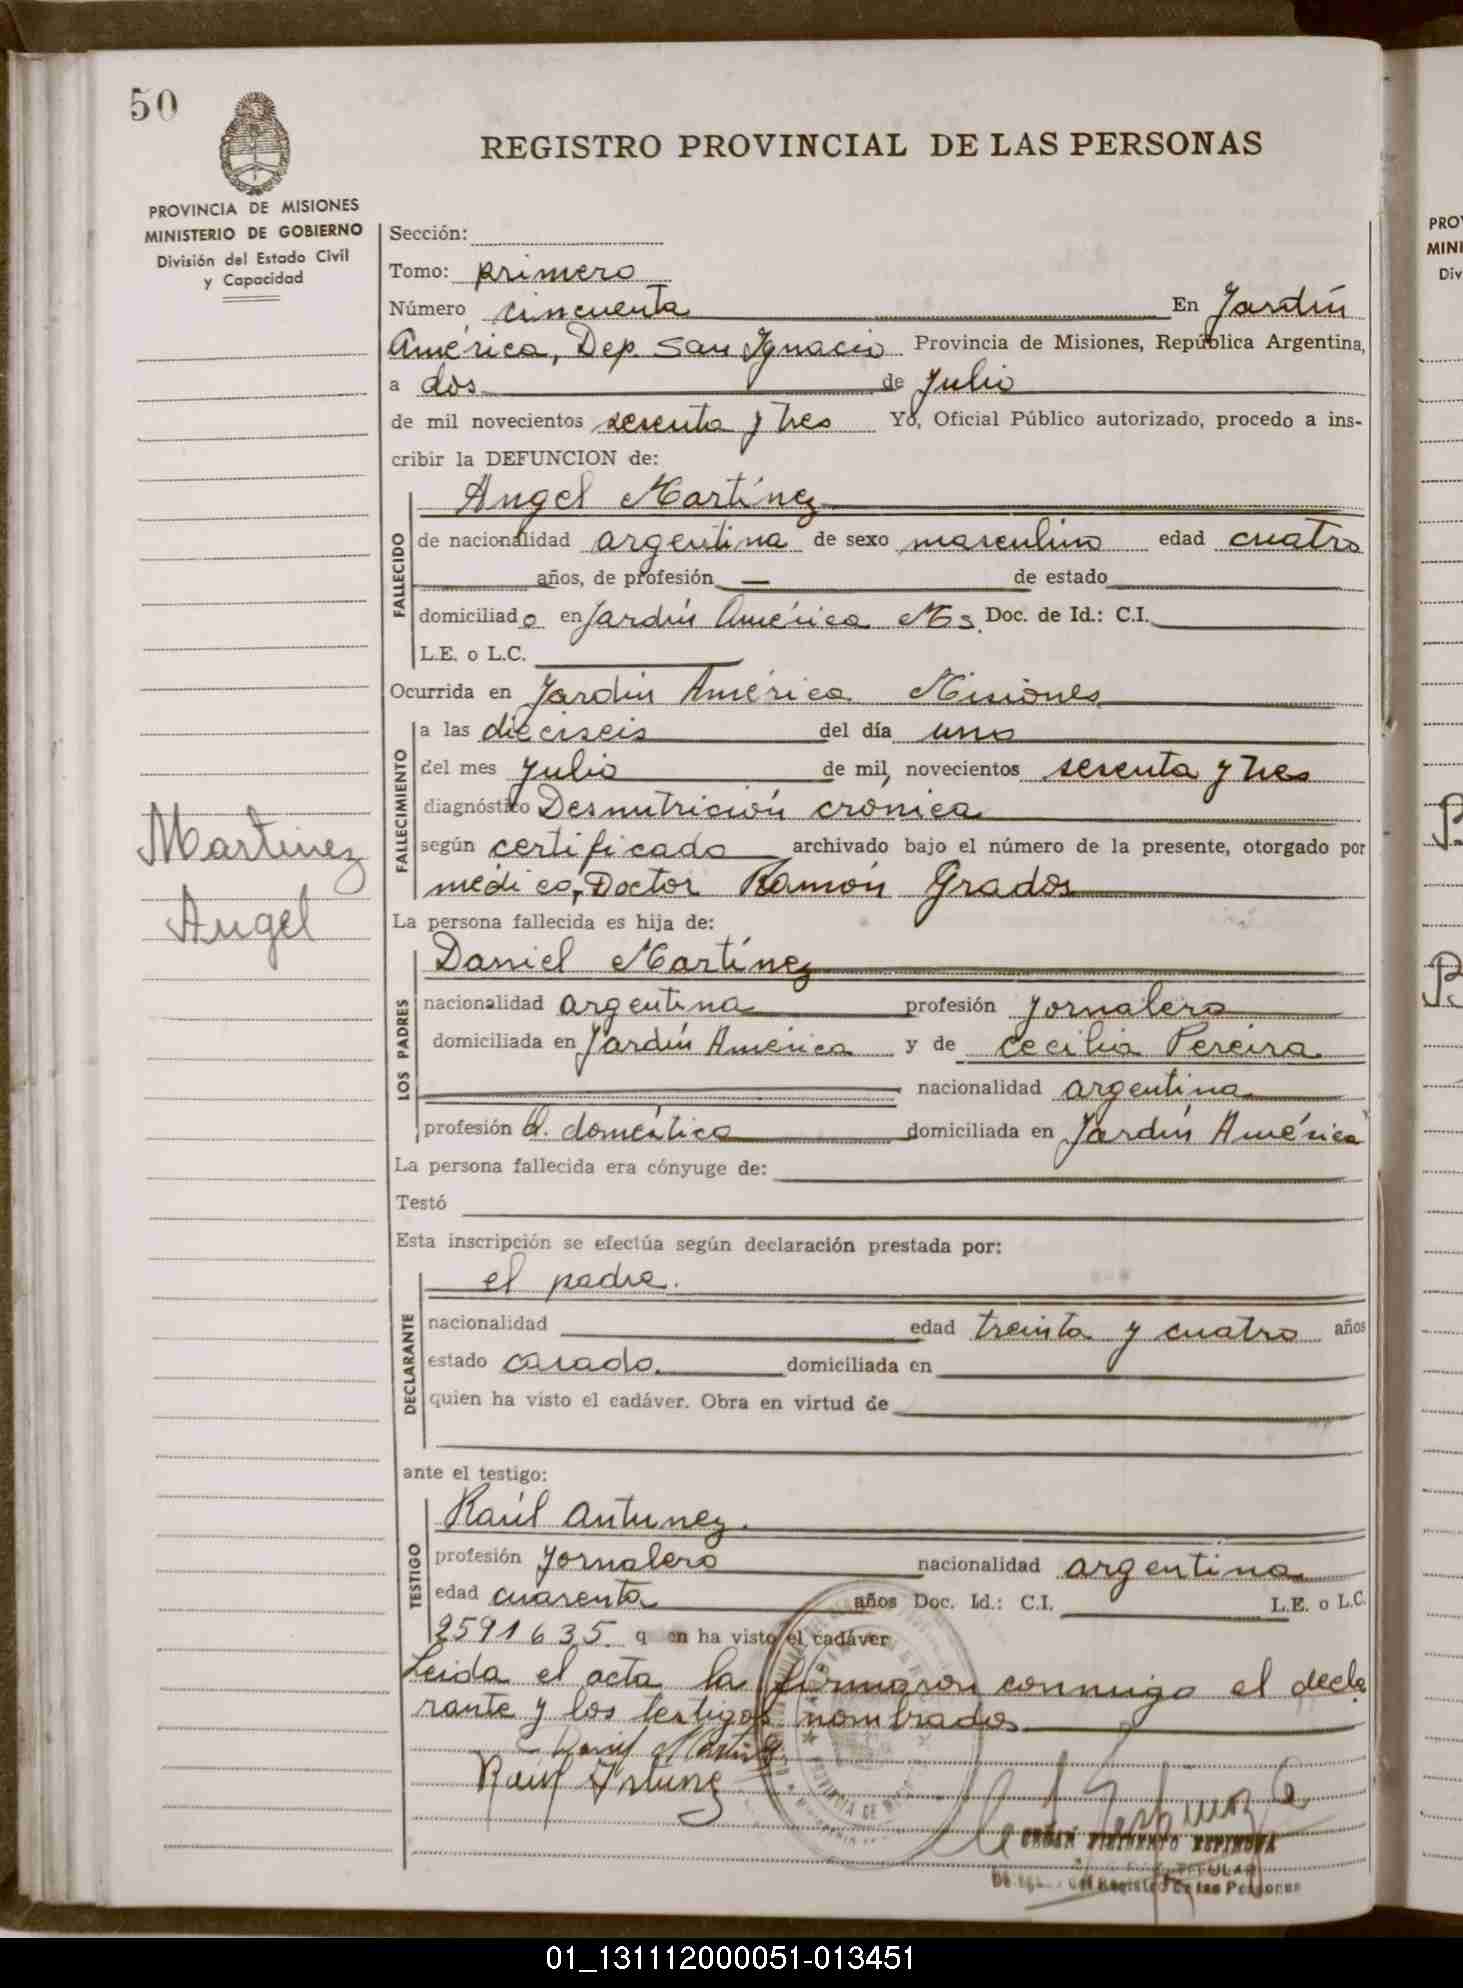 50
REGISTRO PROVINCIAL DE LAS PERSONAS
PROVINCIA DE MISIONES
MINISTERIO DE GOBIERNO
División del Estado Civil
y Capacidad
Sección:
Tomo: primero
Número cincuenta En Jardín
América, Dep. San Ignacio Provincia de Misiones, República Argentina,
a dos de Julio
de mil novecientos sesenta y tres Yo, Oficial Público autorizado, procedo a ins-
cribir la DEFUNCION de:
FALLECIDO
Angel Martínez
de nacionalidad argentina de sexo masculino edad cuatro
años, de profesión — de estado
domiciliado en Jardín América Ms. Doc. de Id.: C.I.
L.E. o L.C.
Ocurrida en Jardín América Misiones
FALLECIMIENTO
a las dieciseis del día uno
del mes Julio de mil novecientos sesenta y tres
diagnóstico Desnutrición crónica
según certificado archivado bajo el número de la presente, otorgado por
médico, Doctor Ramón Grados
Martinez
Angel
La persona fallecida es hija de:
LOS PADRES
Daniel Martínez
nacionalidad argentina profesión jornalero
domiciliada en Jardín América y de Cecilia Pereira
nacionalidad argentina
profesión Q. doméstica domiciliada en Jardín América
La persona fallecida era cónyuge de:
Testó
Esta inscripción se efectúa según declaración prestada por:
DECLARANTE
el padre.
nacionalidad edad treinta y cuatro años
estado casado. domiciliada en
quien ha visto el cadáver. Obra en virtud de
ante el testigo:
TESTIGO
Raúl Antunez.
profesión Jornalero nacionalidad argentina
edad cuarenta años Doc. Id.: C.I. L.E. o L.C.
2591635 q en ha visto el cadáver
Leida el acta la firmaron conmigo el decla
rante y los testigos nombrados
PROVINCIA DE
ESPINOZA
TITULAR
del Registro de las Personas
PRO
MINI
Div
01_131112000051-013451